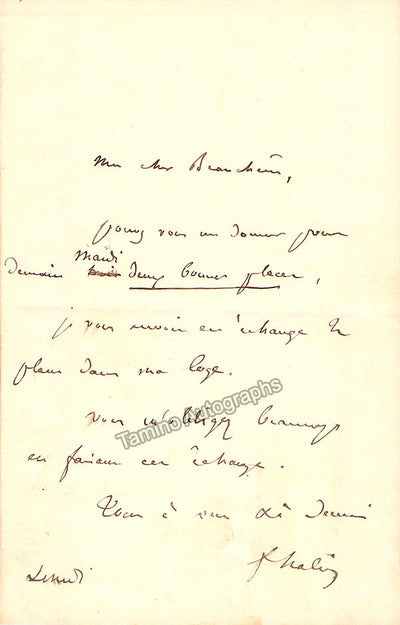 Mon cher Beauchêne,
pouvez vous me donner pour
mardi
demain deux bonnes places,
je vous envoie en échange
places dans ma loge.
vous m'obligez beaucoup
en faisant cet échange.
Tout à vous
Lundi
Tamino Autographs